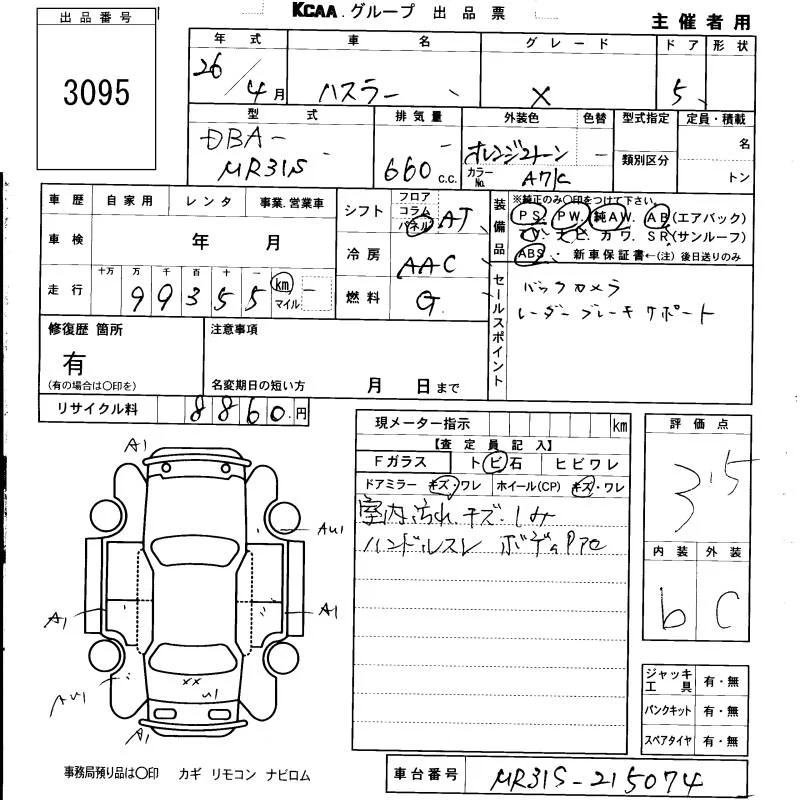 KCAA グループ 出品票
主催者用
出品番号
3095
年式 車名 グレード ドア 形状
26/4月 ハスラー X 5
型式 排気量 外装色 色替 型式指定 定員・積載
DBA-
MR31S
660 c.c.
オレンジ2トーン
カラーNo. A7K
類別区分
名
トン
車歴 自家用 レンタ 事業・営業車
車検 年 月
走行 十万 万 千 百 十 一
99355 km マイル
シフト フロア コラム パネル AT
冷房 AAC
燃料 G
装備品
※純正のみ○印をつけて下さい。
PS PW 純AW AB(エアバック)
カワ SR(サンルーフ)
ABS 新車保証書←(注)後日送りのみ
セールスポイント
バックカメラ
レーダーブレーキサポート
修復歴 箇所
有
(有の場合は○印を)
注意事項
名変期日の短い方 月 日まで
リサイクル料 8860円
現メーター指示 km
【査定員記入】
Fガラス トビ石 ヒビワレ
ドアミラー キズ・ワレ ホイール(CP) キズ・ワレ
室内汚れ.キズ.しみ
ハンドルスレ
評価点
3.5
内装 外装
b C
A1
AU1
A1
A1
AU1
U1
××
A1
ジャッキ工具 有・無
パンクキット 有・無
スペアタイヤ 有・無
事務局預り品は○印 カギ リモコン ナビロム
車台番号 MR31S-215074